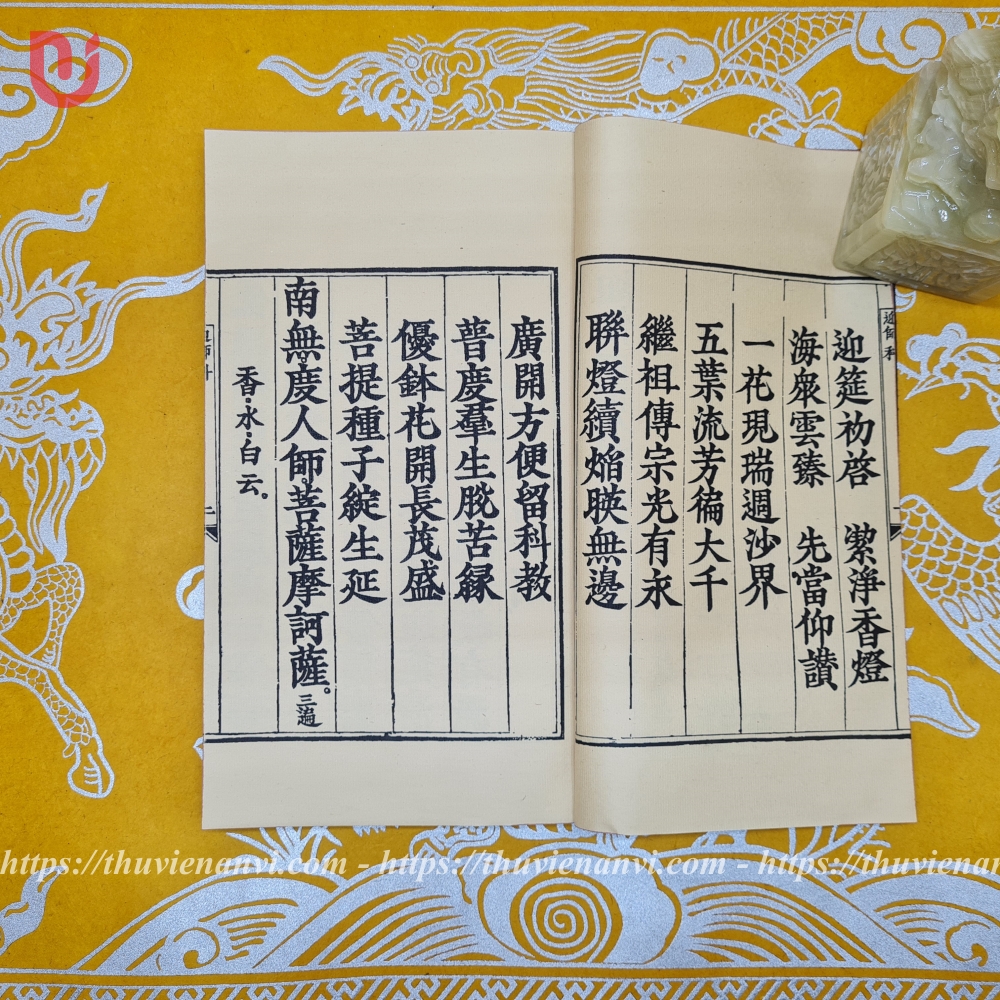 迎筵初啓 潔淨香燈
海衆雲臻 先當仰讃
一花現瑞週沙界
五葉流芳徧大千
繼祖傳宗光有永
聨燈續焔暎無邊
廣開方便留科教
普度羣生脱苦縁
優鉢花開長茂盛
菩提種子綻生延
南無度人師菩薩摩訶薩。三遍
香・水・白云。
https://thuvienanvi.com - https://thuvienanvi.com - https://thuvienanv